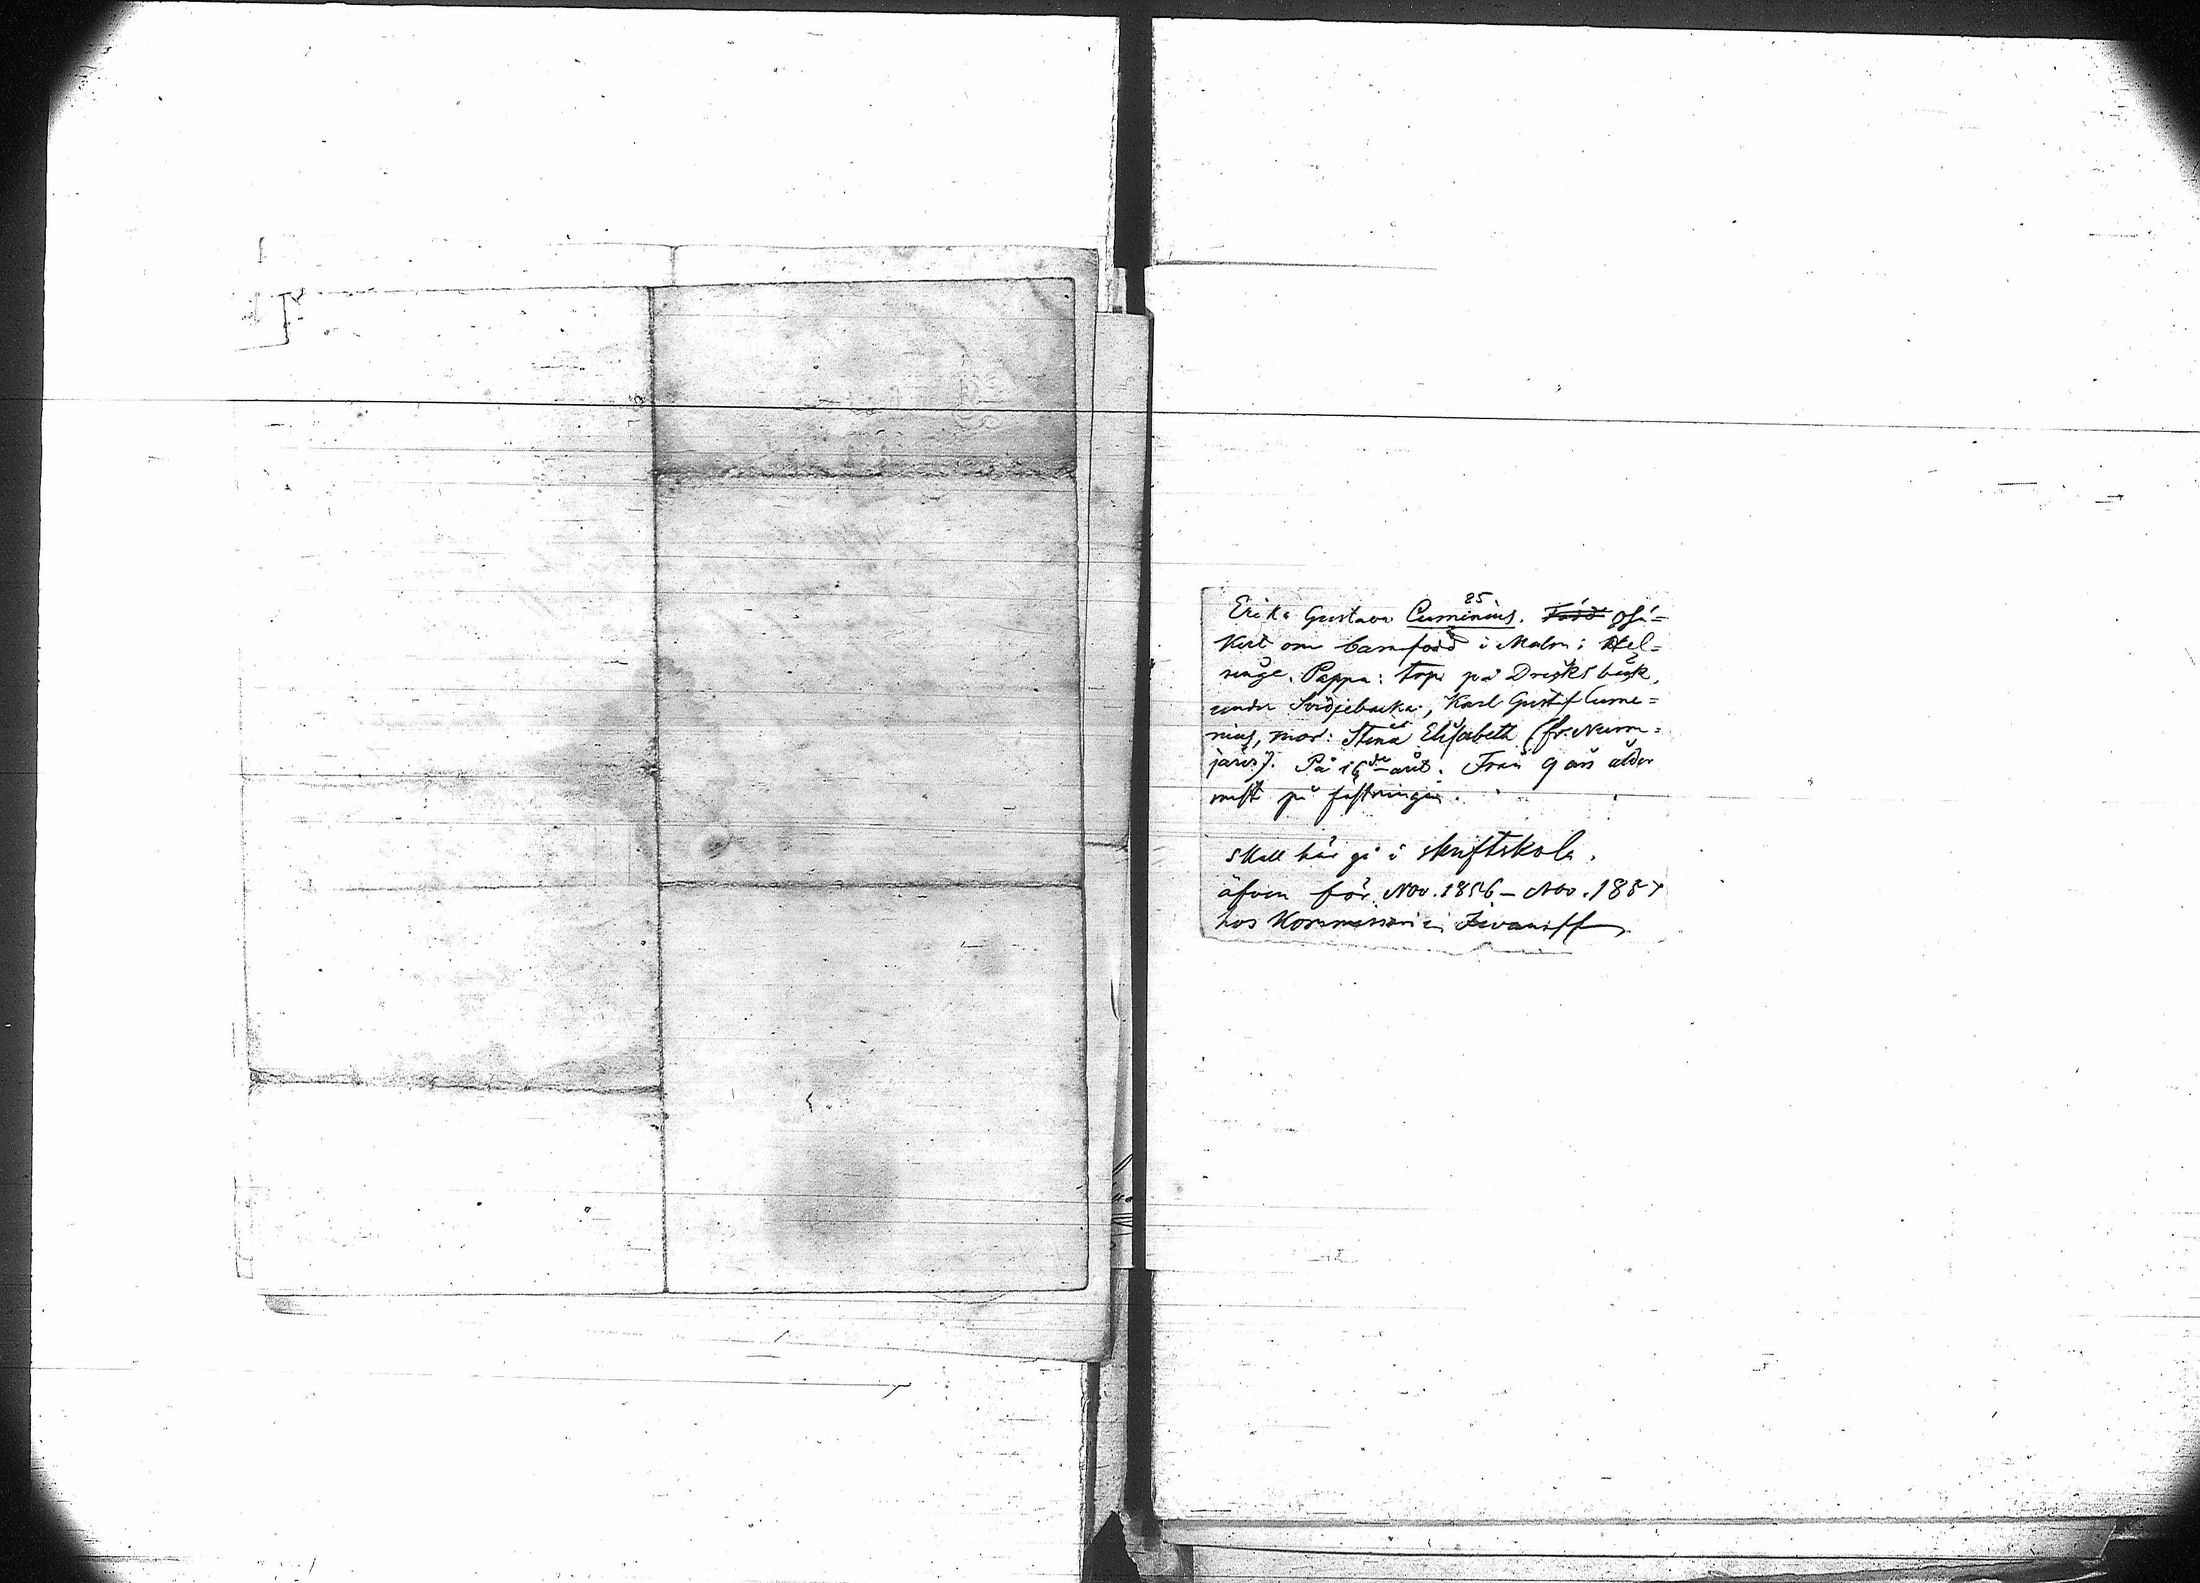 85.
Erika Gustava Cumenius. Född osä=
kert om barnfödd i Malm i Hel=
singe. Pappa: torp. på Dresksbäck,
under Svidjebacka, Karl Gustf Cume=
nius, mor: Stina Elisabeth (fr. Numm=
järvi). På 16de året. Från 9 års ålder
mest på fästningen.
Skall här gå i skriftskola.
äfven för Nov. 1856 – Nov. 1857
hos Kommissarien Iwanoff